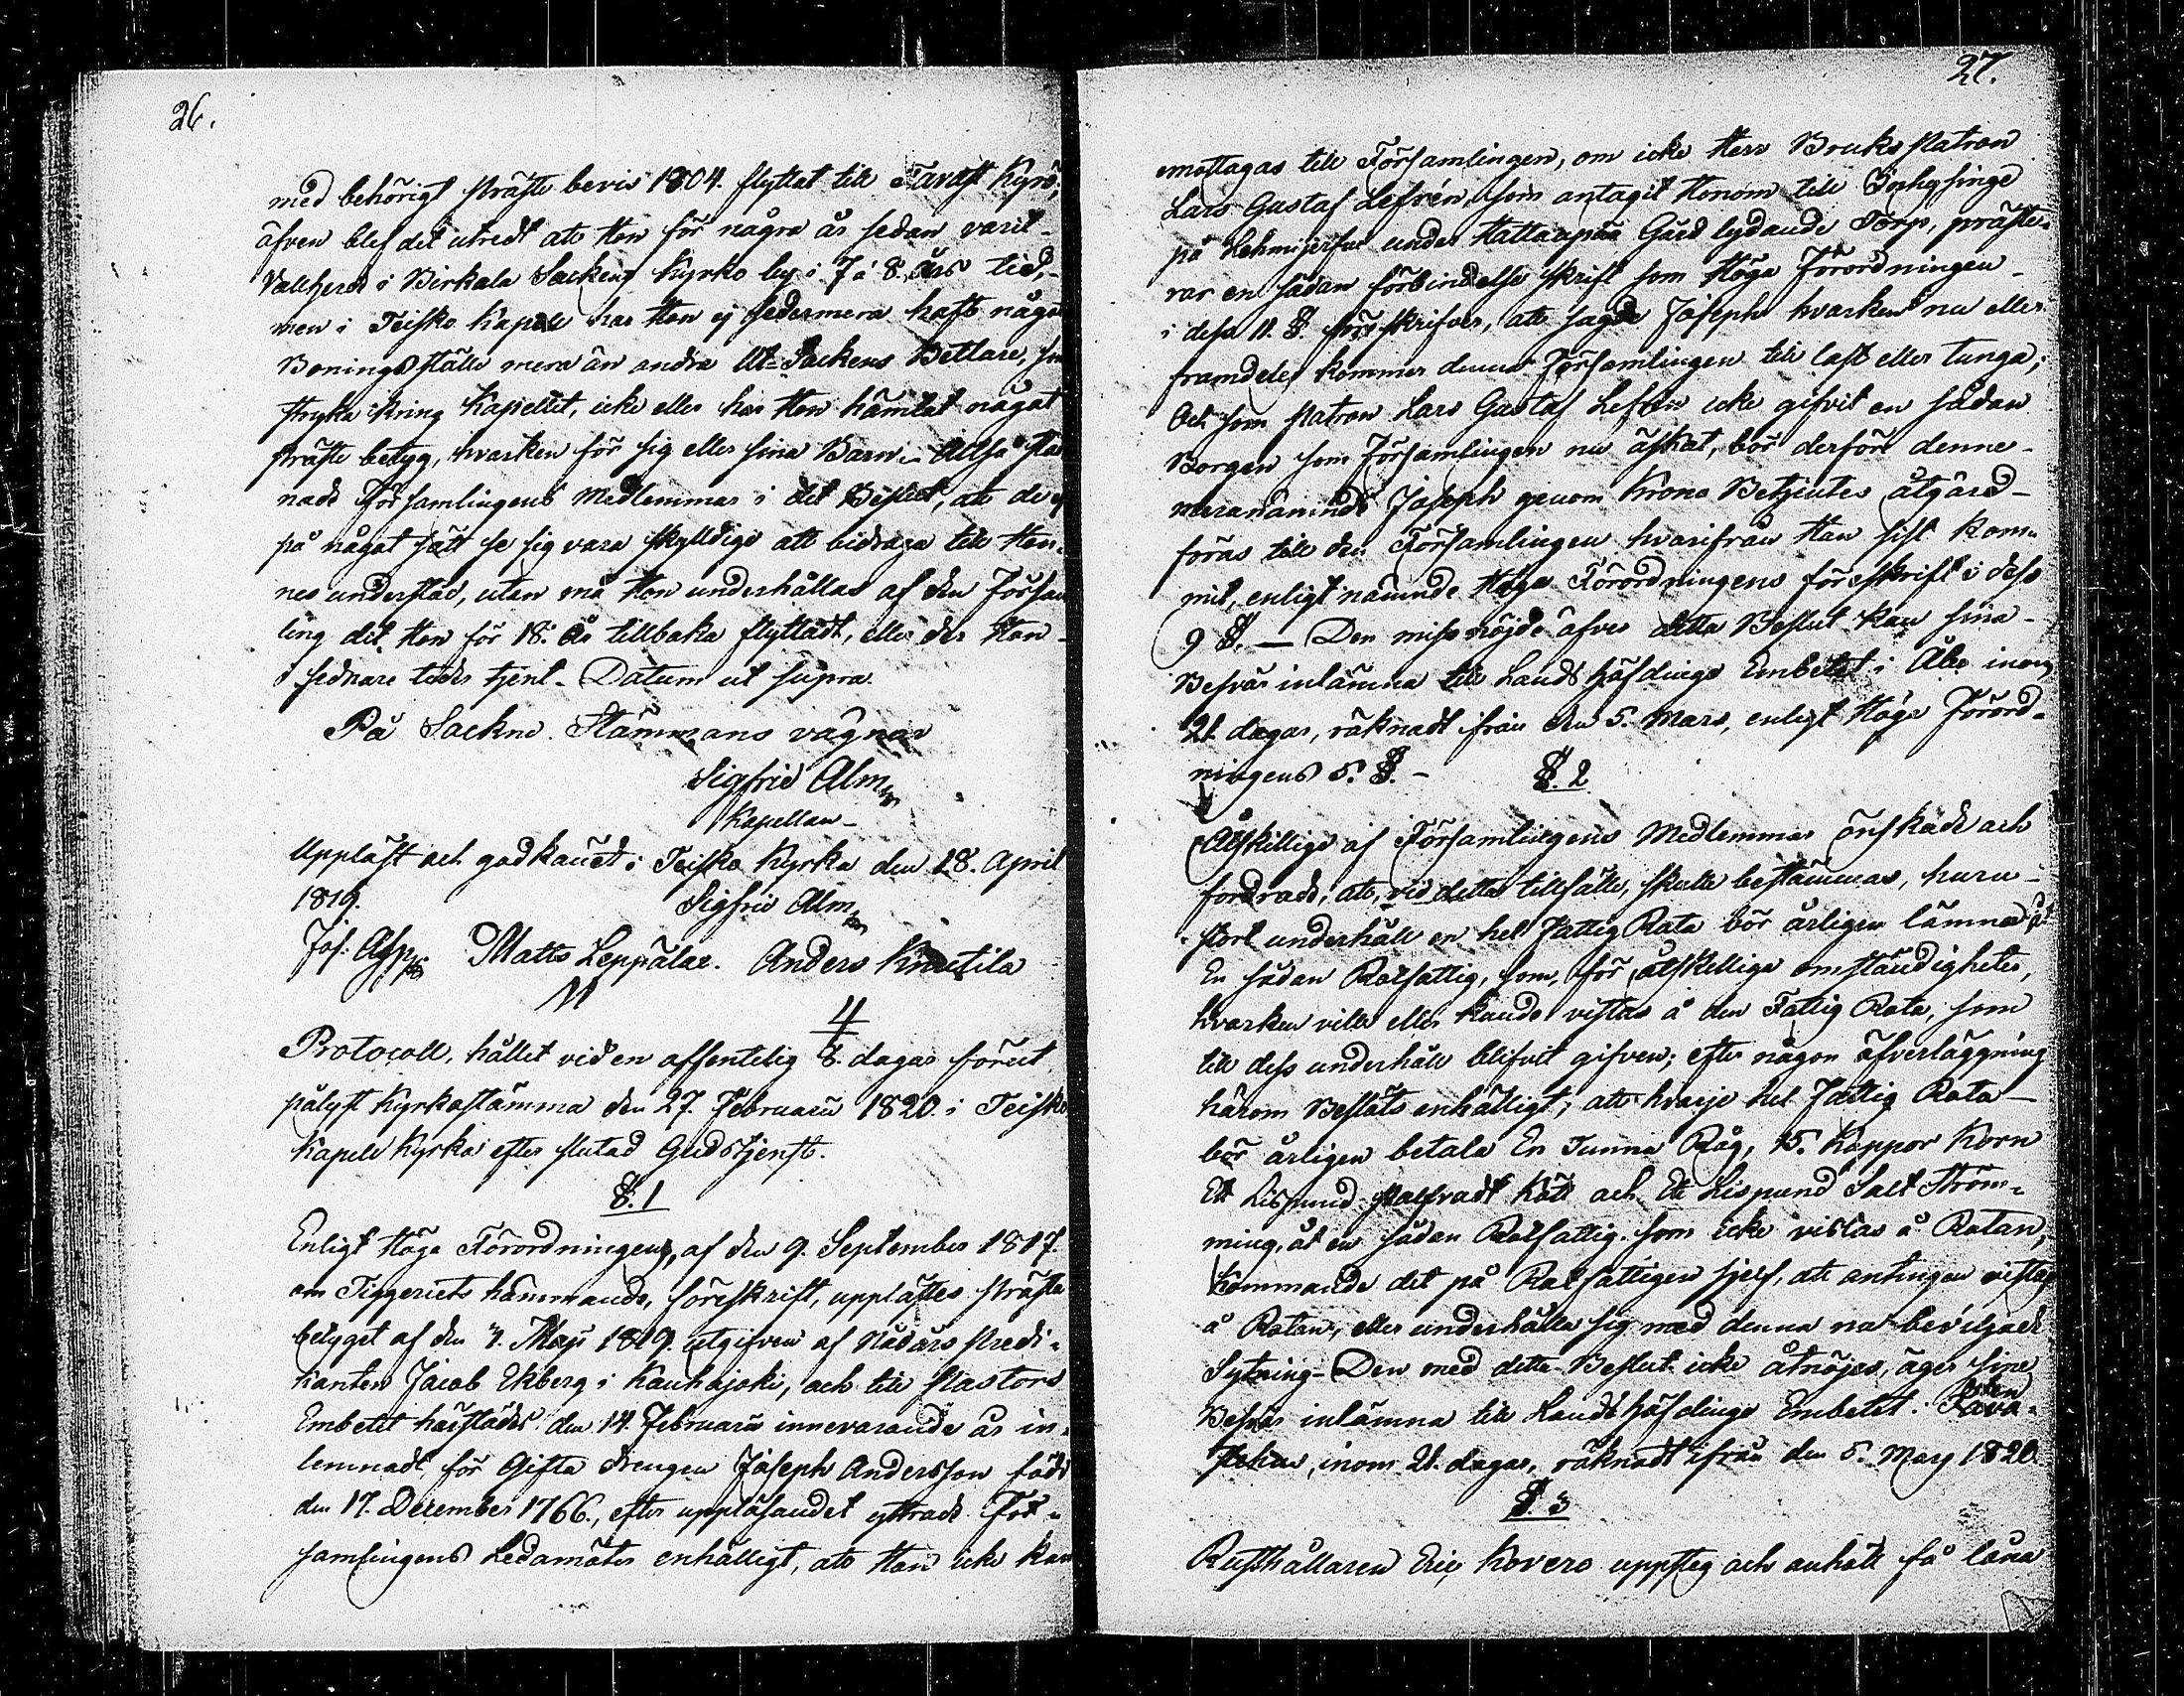 26.
med behörigt Präste bevis 1804. flyttat till Tavast Kyrö,
äfven blef det utredt att Hon för några år sedan varit
Vallhjerde i Birkala Sockens Kyrko by i 7 á 8. Års tid,-
men i Teisko Kapell har Hon ej sedermera haft något
Boningsställe mera än andra Ut-Sockens Betlare, som
stryka kring Kapellet, icke eller har Hon hämtat något
Präste betyg, hvarken för sig eller sina Barn.- Altså stan
nade Församlingens Medlemmar i det Beslut, att de ej
på något sätt se sig vara skyldige att bidraga till Hen-
nes understöd, utan må Hon underhållas af den Försam
ling dit Hon för 18. År tillbaka flyttadt, eller der Hon
i sednare tider tjent. Datum ut supra.
På Sockne Stämmans vägnar
Sigfrid Alm
Kapellan
Uppläst och godkänt i Teisko Kyrka den 18. April
1819.
Sigfrid Alm
Jos. Asp Matts Leppälax. Anders Knuutila
4
Protocoll, hållet vid en offentelig 8. dagar förut
pålyst Kyrkostämma den 27. Februarii 1820. i Teisko
Kapell Kyrka efter slutad Gudstjenst.
§. 1
Enligt Höga Förordningens, af den 9. September 1817.
om Tiggeriets hämmande, föreskrift, upplästes Präste
betyget af den 7. Maji 1819. utgifven af Nådårs Predi-
kanten Jacob Ekberg i Kauhajoki, och till Pastors
Embetet härstädes den 14. Februarii innevarande år in-
lemnadt, för Gifta Drengen Joseph Andersson född
den 17. December 1766., efter uppläsandet yttrade För-
samlingens Ledamöter enhälligt, att Han icke kan
27.
emottagas till Församlingen, om icke Herr Bruks Patron
Lars Gustaf Lefrén, som antagit Honom till Inhysinge
på Lehmijerfvi under Hattanpää Gård lydande Torp, præste-
rar en sådan förbindelse skrift som Höga Förordningen
i dess 11. §. föreskrifver, att sagde Joseph hvarken nu eller
framdeles kommer denna Församlingen till last eller tunga;
Och som Patron Lars Gustaf Lefrén icke gifvit en sådan
Borgen som Församlingen nu äskat, bör derföre denne
meranämnde Joseph genom Krono Betjentes åtgärd
föras till den Församlingen hvarifrån Han sist kom-
mit, enligt nämnde Höga Förordningens föreskrift i dess
9 §. — Den missnöjde öfver detta Beslut kan sina
Besvär inlämna till Landshöfdinge Embetet i Åbo inom
21. dagar, räknadt ifrån den 5. Mars, enligt Höga Förord-
ningens 5. §. -
§. 2
Åtskillige af Församlingens Medlemmar önskade och
fordrade, att, vid detta tillfälle, skulle bestämmas, huru
stort underhåll en hel Fattig Rota bör årligen lämna åt
En sådan Rotfattig, som, för åtskilliga omständigheter,
hvarken ville eller kunde vistas å den Fattig Rota, som
till dess underhåll blifvit gifven; efter någon öfverläggning
härom Beslöts enhälligt; att hvarje hel Fattig Rota
bör årligen betala En Tunna Råg, 15. Kappor Korn
Ett Lispund Palfvadt Kött och Ett Lispund Salt Ström-
ming, åt en sådan Rotfattig som icke vistas å Rotan,
kommande det på Rotfattigen sjelf, att antingen vistas
å Rotan, eller underhålla sig med denna nu beviljade
Sytning - Den med detta Beslut icke åtnöjes, äger sine
Besvär inlämna till Landshöfdinge Embetet i Tava-
stehus, inom 21. dagar, räknadt ifrån den 5. Mars 1820.
§. 3
Rusthållaren Eric Kovero uppsteg och anhöll få låna